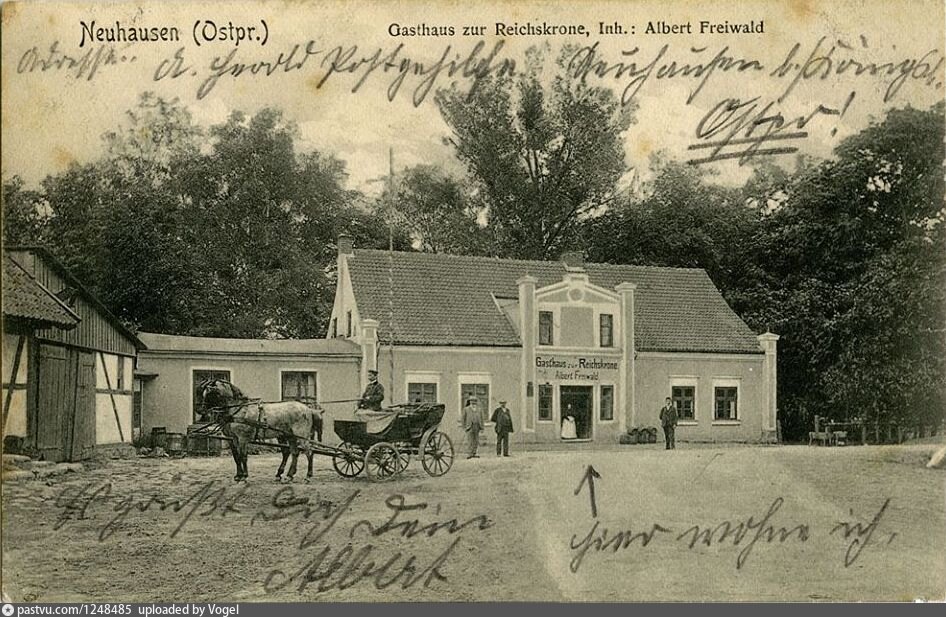 Neuhausen (Ostpr.)
Gasthaus zur Reichskrone, Inh.: Albert Freiwald
Adresse: A. Herold Postgehilfe Neuhausen b. Königsb.
Ostpr!
Gasthaus zur Reichskrone
Albert Freiwald
Es grüßt Dich Dein
Albert
hier wohne ich.
pastvu.com/1248485 uploaded by Vogel